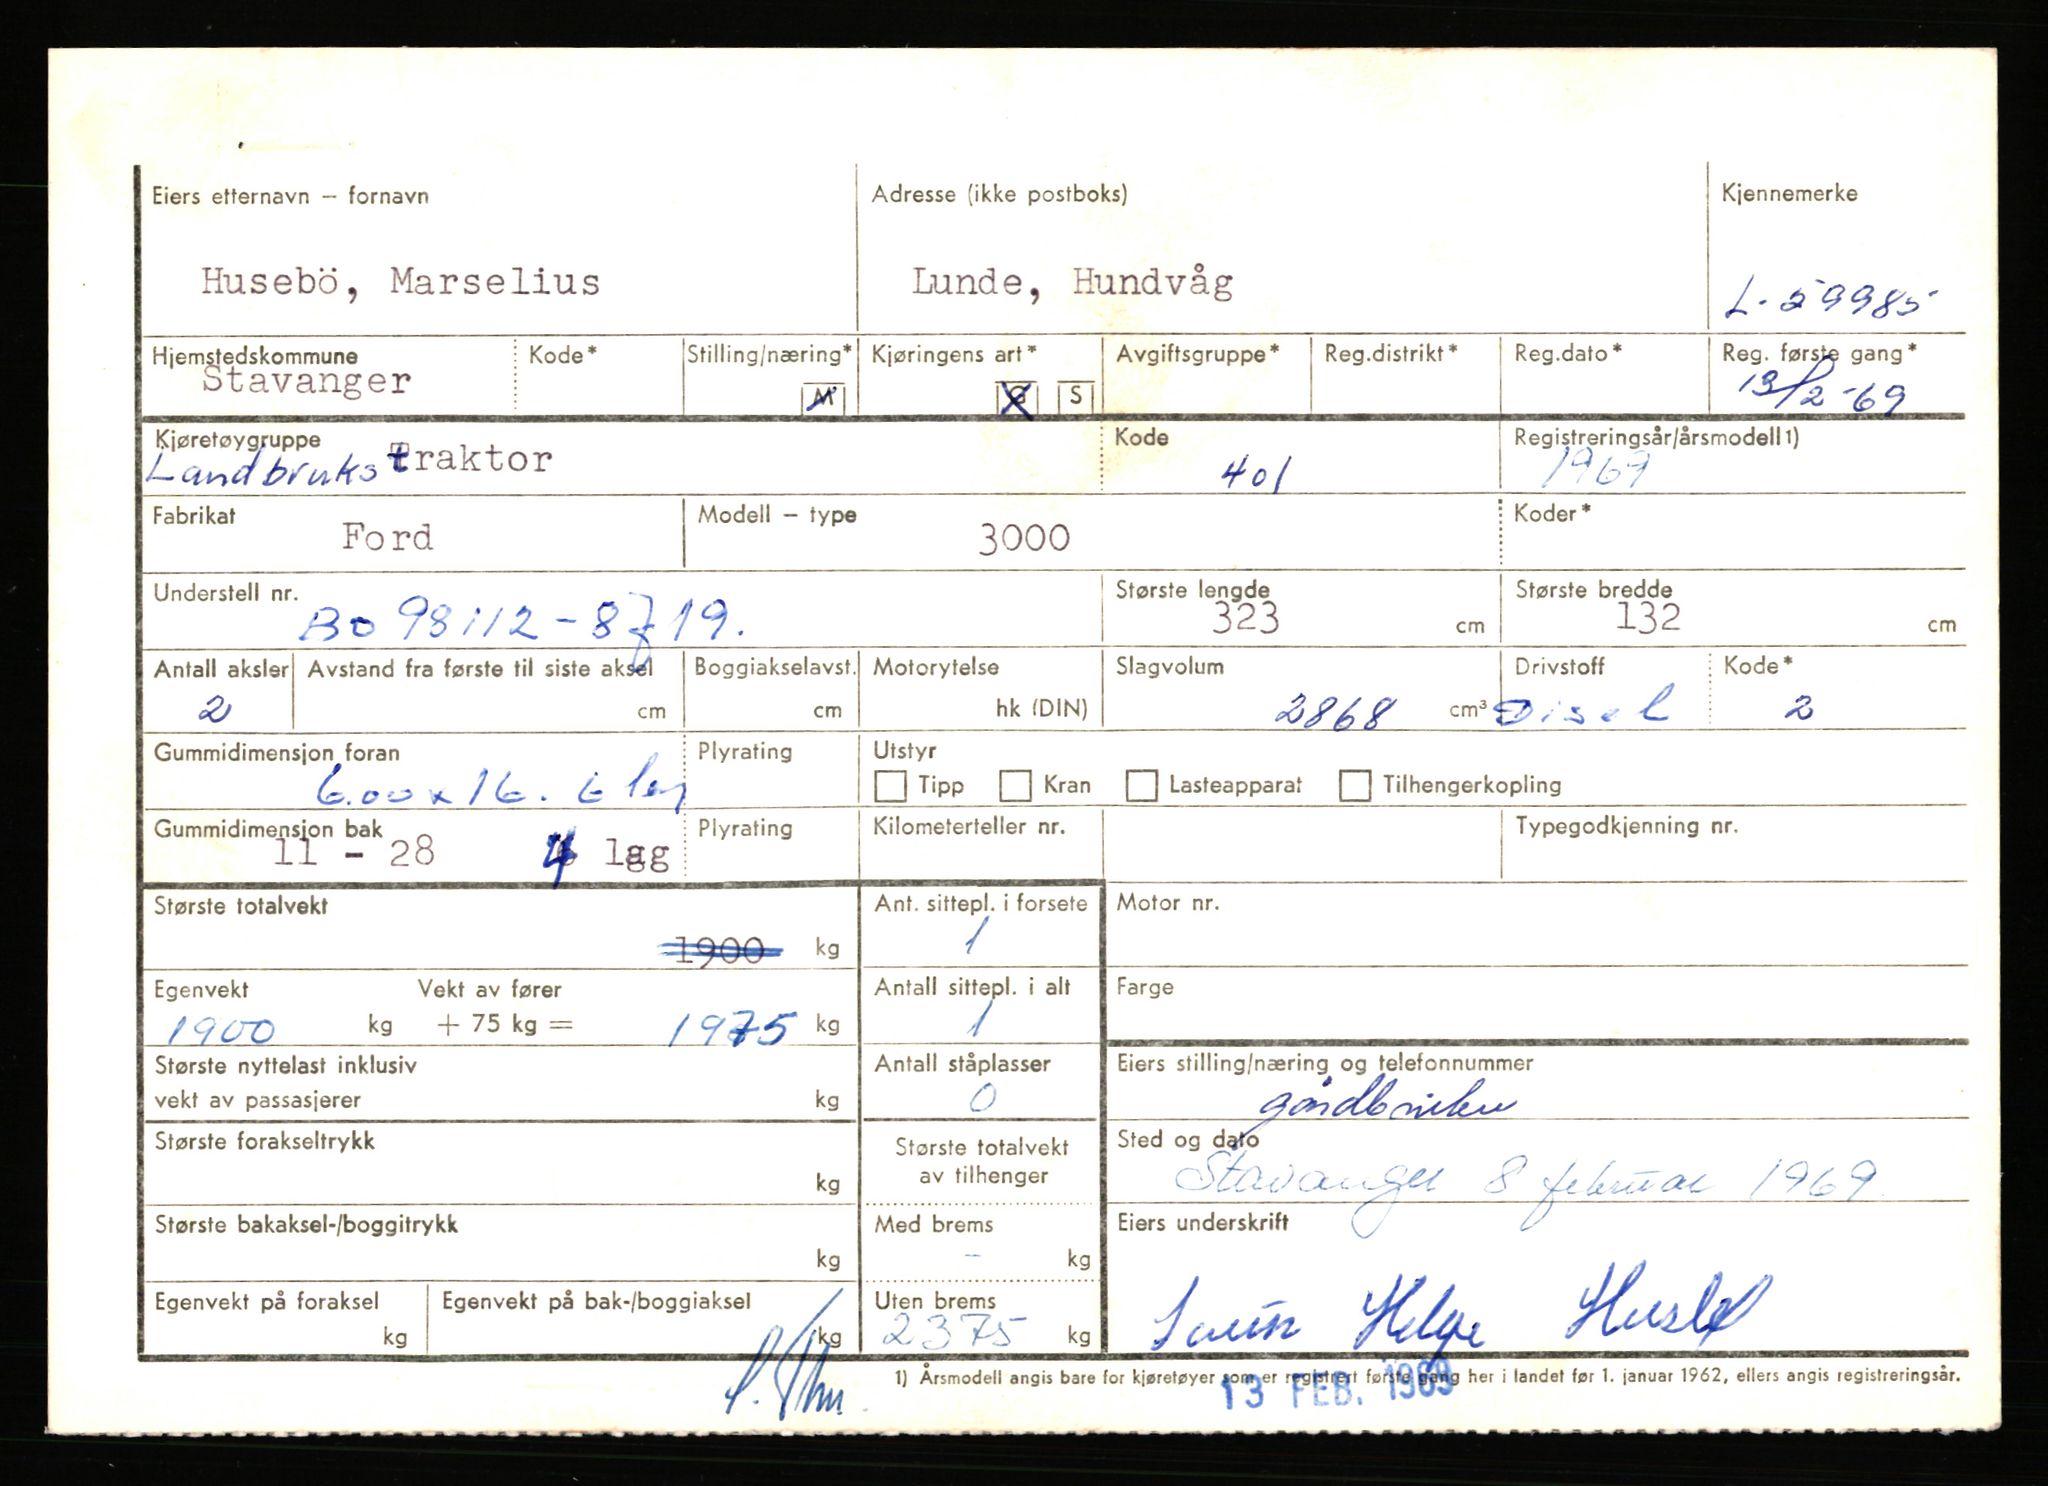 Eiers etternavn – fornavn Adresse (ikke postboks) Kjennemerke
Husebö, Marselius Lunde, Hundvåg L-59985
Hjemstedskommune Kode* Stilling/næring* Kjøringens art* Avgiftsgruppe* Reg.distrikt* Reg.dato* Reg. første gang*
Stavanger M S 13/2-69
Kjøretøygruppe Kode Registreringsår/årsmodell 1)
Landbrukstraktor 401 1969
Fabrikat Modell – type Koder*
Ford 3000
Understell nr. Største lengde Største bredde
Bo 98112-8 19. 323 cm 132 cm
Antall aksler Avstand fra første til siste aksel Boggiakselavst. Motorytelse Slagvolum Drivstoff Kode*
2 cm cm hk (DIN) 2868 cm³ Disel 2
Gummidimensjon foran Plyrating Utstyr
6.00x16. 6 lag Tipp Kran Lasteapparat Tilhengerkopling
Gummidimensjon bak Plyrating Kilometerteller nr. Typegodkjenning nr.
11 - 28 4 lag
Største totalvekt Ant. sittepl. i forsete Motor nr.
1900 kg 1
Egenvekt Vekt av fører Antall sittepl. i alt Farge
1900 kg + 75 kg = 1975 kg 1
Største nyttelast inklusiv Antall ståplasser Eiers stilling/næring og telefonnummer
vekt av passasjerer kg 0 gårdbruker
Største forakseltrykk Største totalvekt Sted og dato
kg av tilhenger Stavanger 8 februar 1969
Største bakaksel-/boggitrykk Med brems Eiers underskrift
kg - kg
Egenvekt på foraksel Egenvekt på bak-/boggiaksel Uten brems
kg kg 2375 kg Helge Husebø
1) Årsmodell angis bare for kjøretøyer som er registrert første gang her i landet før 1. januar 1962, ellers angis registreringsår.
13 FEB. 1969